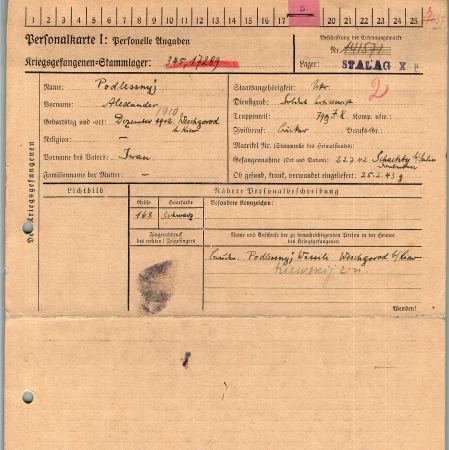 1 2 3 4 5 6 7 8 9 10 11 12 13 14 15 16 17 18 19 20 21 22 23 24 25
S
Personalkarte I: Personelle Angaben
Beschriftung der Erkennungsmarke
Kriegsgefangenen-Stammlager: 345, 17289
Nr. 141571
Lager: STALAG X
2
Des Kriegsgefangenen
Name: Podlessnyj
Vorname: Alexander
Geburtstag und -ort: Dezember 1912 1910 Weschgorod
b. Kiew
Religion: —
Vorname des Vaters: Iwan
Familienname der Mutter: —
Staatsangehörigkeit: Ukr.
Dienstgrad: Soldat
Truppenteil: J.R. Komp. usw.:
Zivilberuf: Berufs-Gr.:
Matrikel Nr. (Stammrolle des Heimatstaates):
Gefangennahme (Ort und Datum): 22.7.42 Schachty
Ob gesund, krank, verwundet eingeliefert: 25.2.43 g
Lichtbild
Nähere Personalbeschreibung
Größe
Haarfarbe
Besondere Kennzeichen:
168
schwarz
Fingerabdruck
des rechten! Zeigefingers
Name und Anschrift der zu benachrichtigenden Person in der Heimat
des Kriegsgefangenen
Podlessnyj Wassili Weschgorod b/Kiew
Wenden!